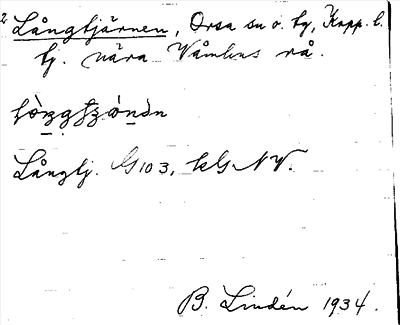 2 Långtjärnen, Orsa sn o. tg, Kopp. l.
tj. nära Våmhus rå.
Långtj. G 103, kG NV.
B. Lindén 1934.